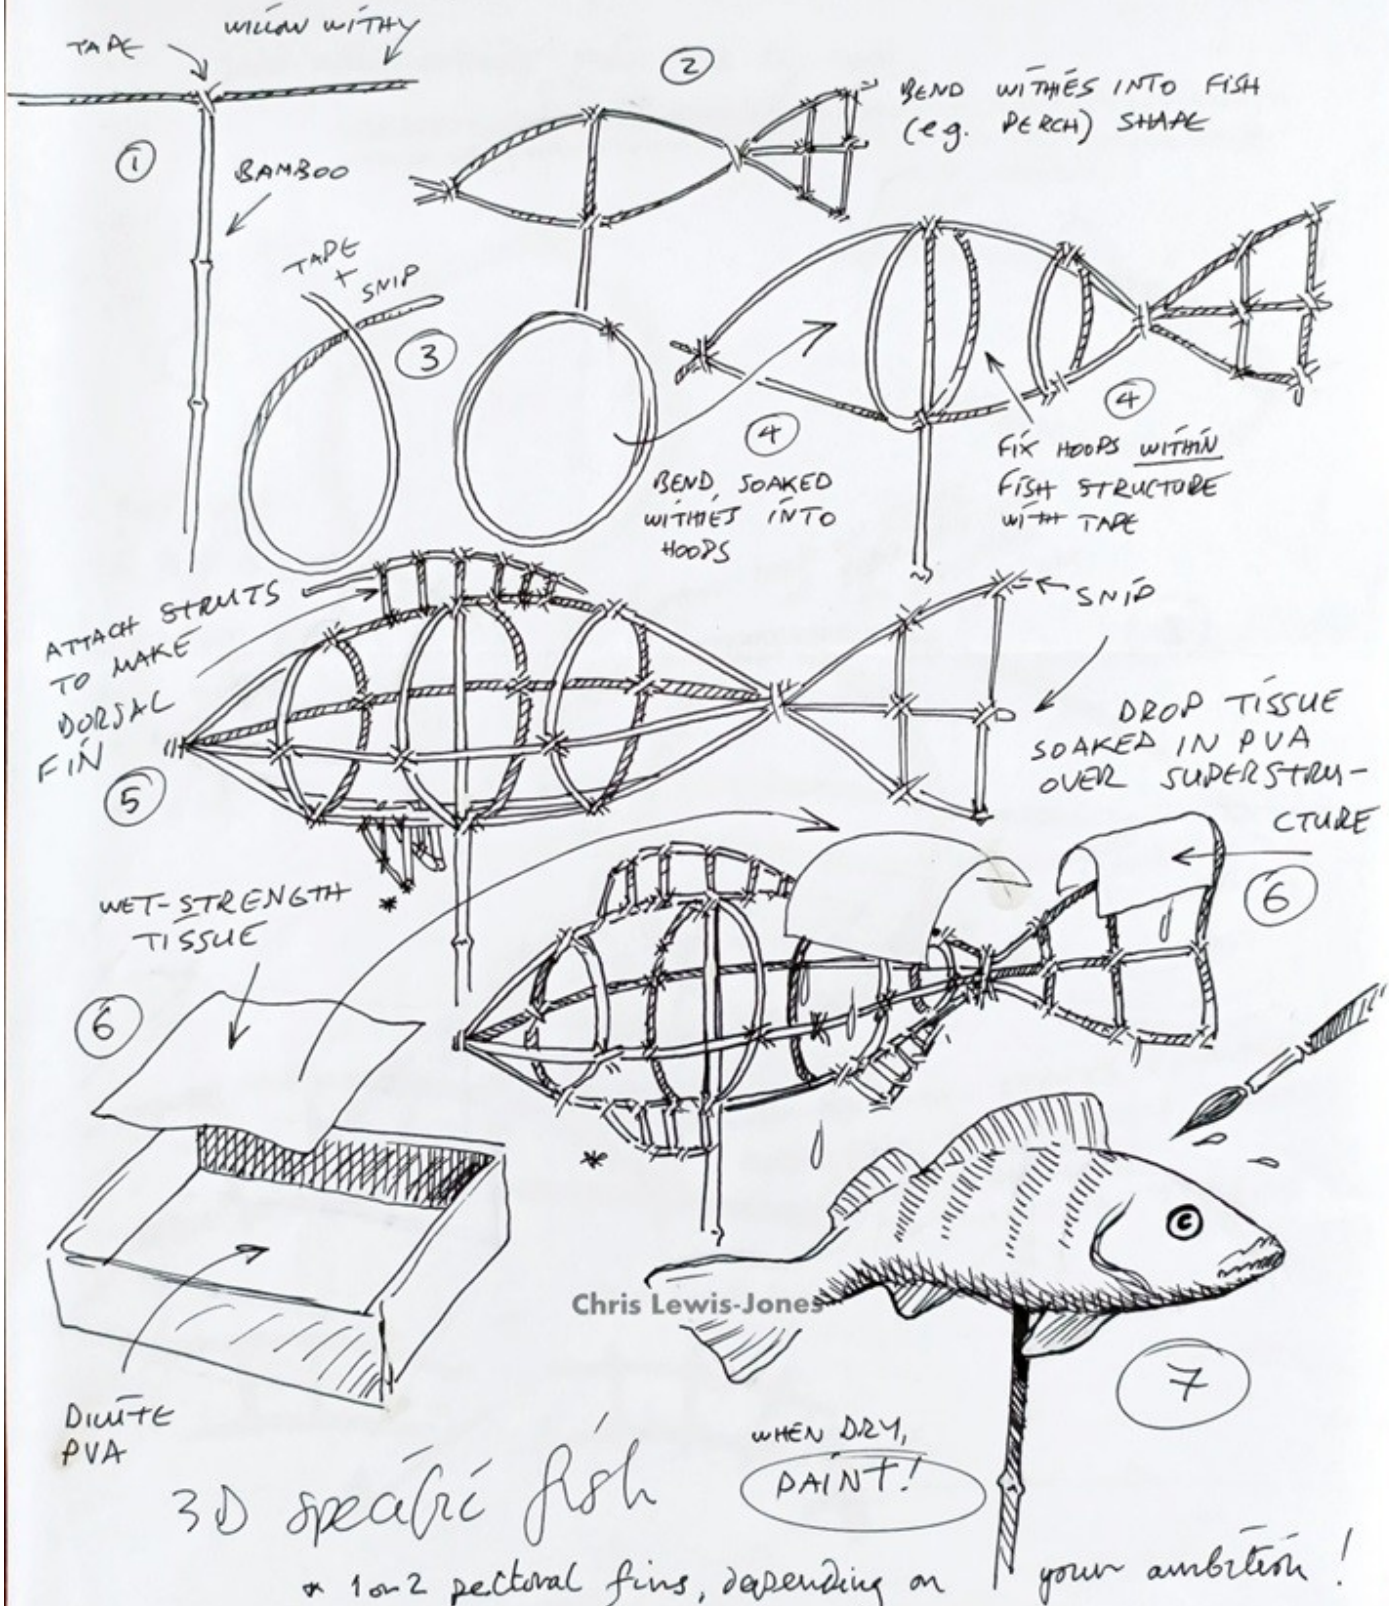 TAPE
WILLOW WITHY
1
BAMBOO
2
BEND WITHIES INTO FISH
(e.g. PERCH) SHAPE
TAPE
+
SNIP
3
4
BEND SOAKED
WITHIES INTO
HOOPS
4
FIX HOOPS WITHIN
FISH STRUCTURE
WITH TAPE
ATTACH STRUTS
TO MAKE
DORSAL
FIN
5
SNIP
DROP TISSUE
SOAKED IN PVA
OVER SUPERSTRU-
CTURE
6
*
WET-STRENGTH
TISSUE
6
*
DILUTE
PVA
Chris Lewis-Jones
7
WHEN DRY,
PAINT!
3D specific fish
* 1 or 2 pectoral fins, depending on your ambition!